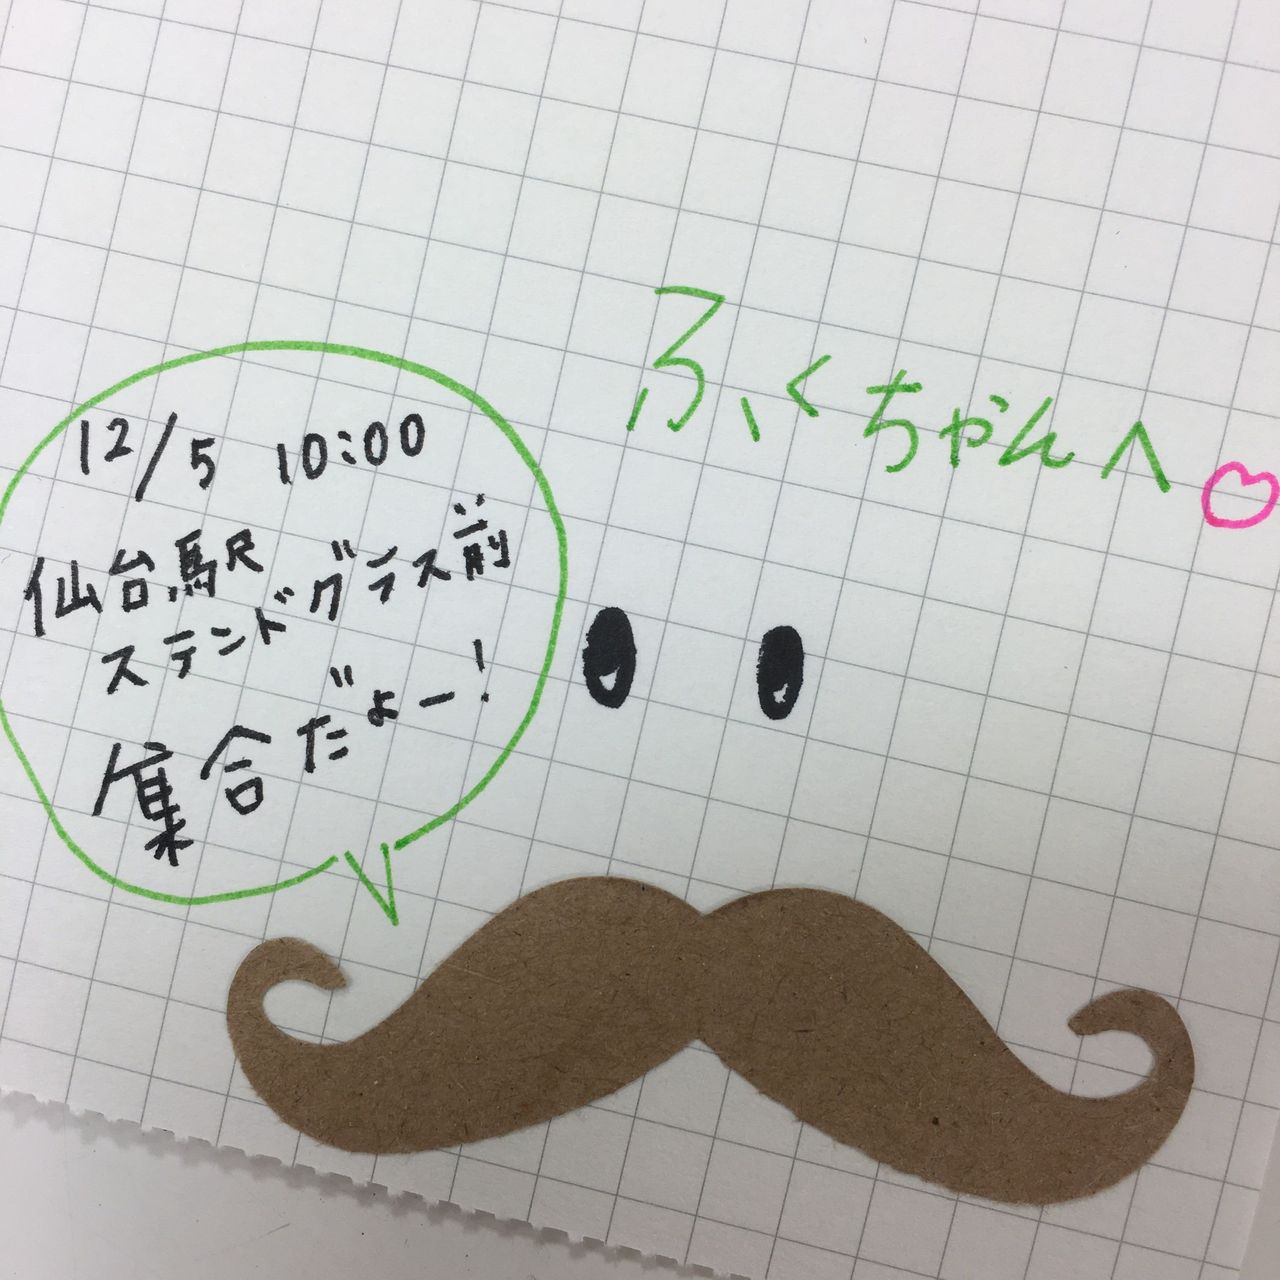 ふくちゃんへ
12/5 10:00
仙台駅
ステンドグラス前
集合だよー!